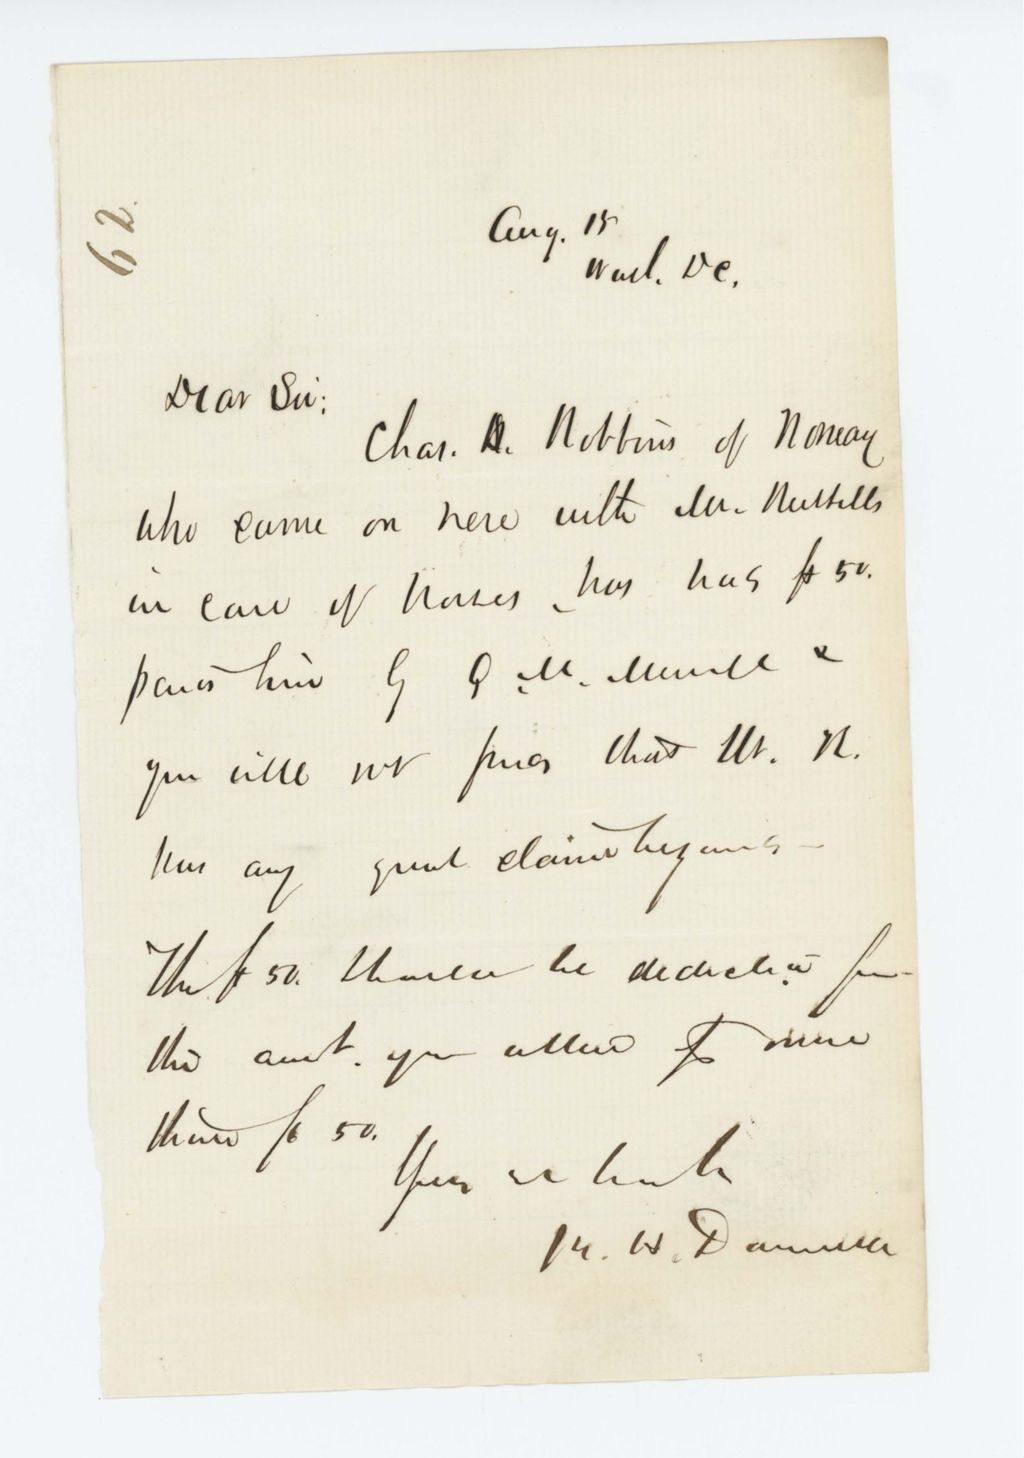 62
Aug. 15
Wash. DC.
Dear Sir:
Chas. N. Robbins of Norway
who came on here with Mr.
in care of horses, has had $50.
paid him by Q. M. Merrill &
you will not find that Mr. R.
has any great claim beyond –
The $50. should be deducted from
the amt. you allow if more
than $50.
Yours in haste
W.